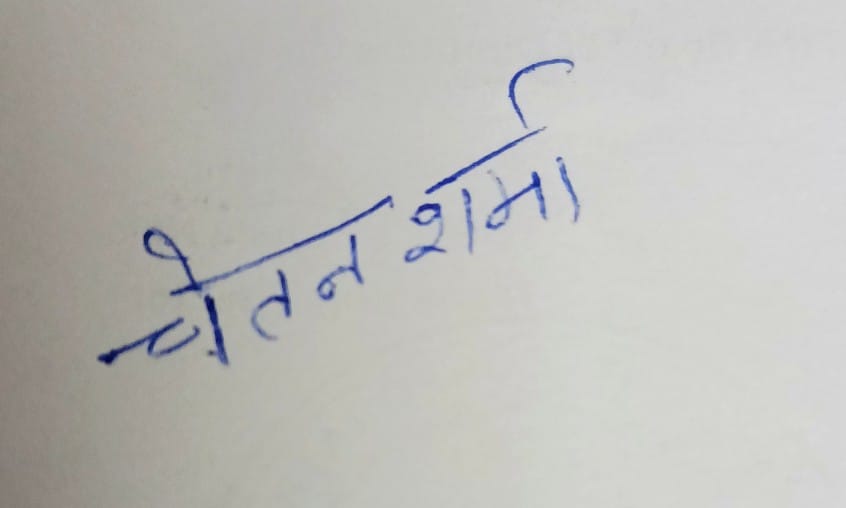 चेतन शर्मा